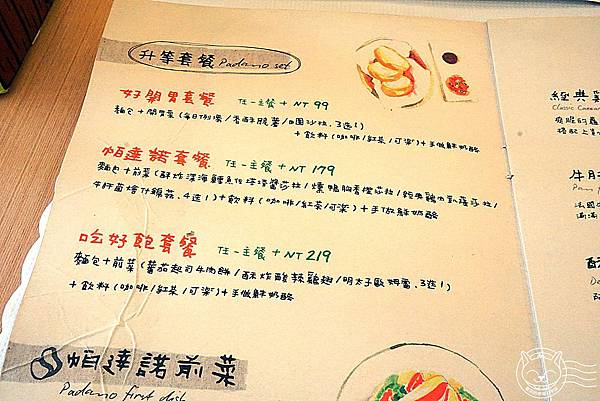 升等套餐 Padano set
好開胃套餐 任一主餐 + NT 99
麵包 + 開胃菜 (每日例湯/香酥脆薯/田園沙拉、3選1)
+ 飲料 (咖啡/紅茶/可樂) + 手做鮮奶酪
帕達諾套餐 任一主餐 + NT 179
麵包 + 前菜 (酥炸深海鱈魚佐洋芋薯莎拉/燻鴨胸香橙莎拉/經典雞肉凱薩莎拉/
牛肝菌燴什錦菇、4選1) + 飲料 (咖啡/紅茶/可樂) + 手做鮮奶酪
吃好飽套餐 任一主餐 + NT 219
麵包 + 前菜 (蕃茄起司牛肉餅/酥炸酸辣雞翅/明太子歐姆蛋、3選1)
+ 飲料 (咖啡/紅茶/可樂) + 手做鮮奶酪
帕達諾前菜
Padano first dish
經典
Classic Caesar
牛肝